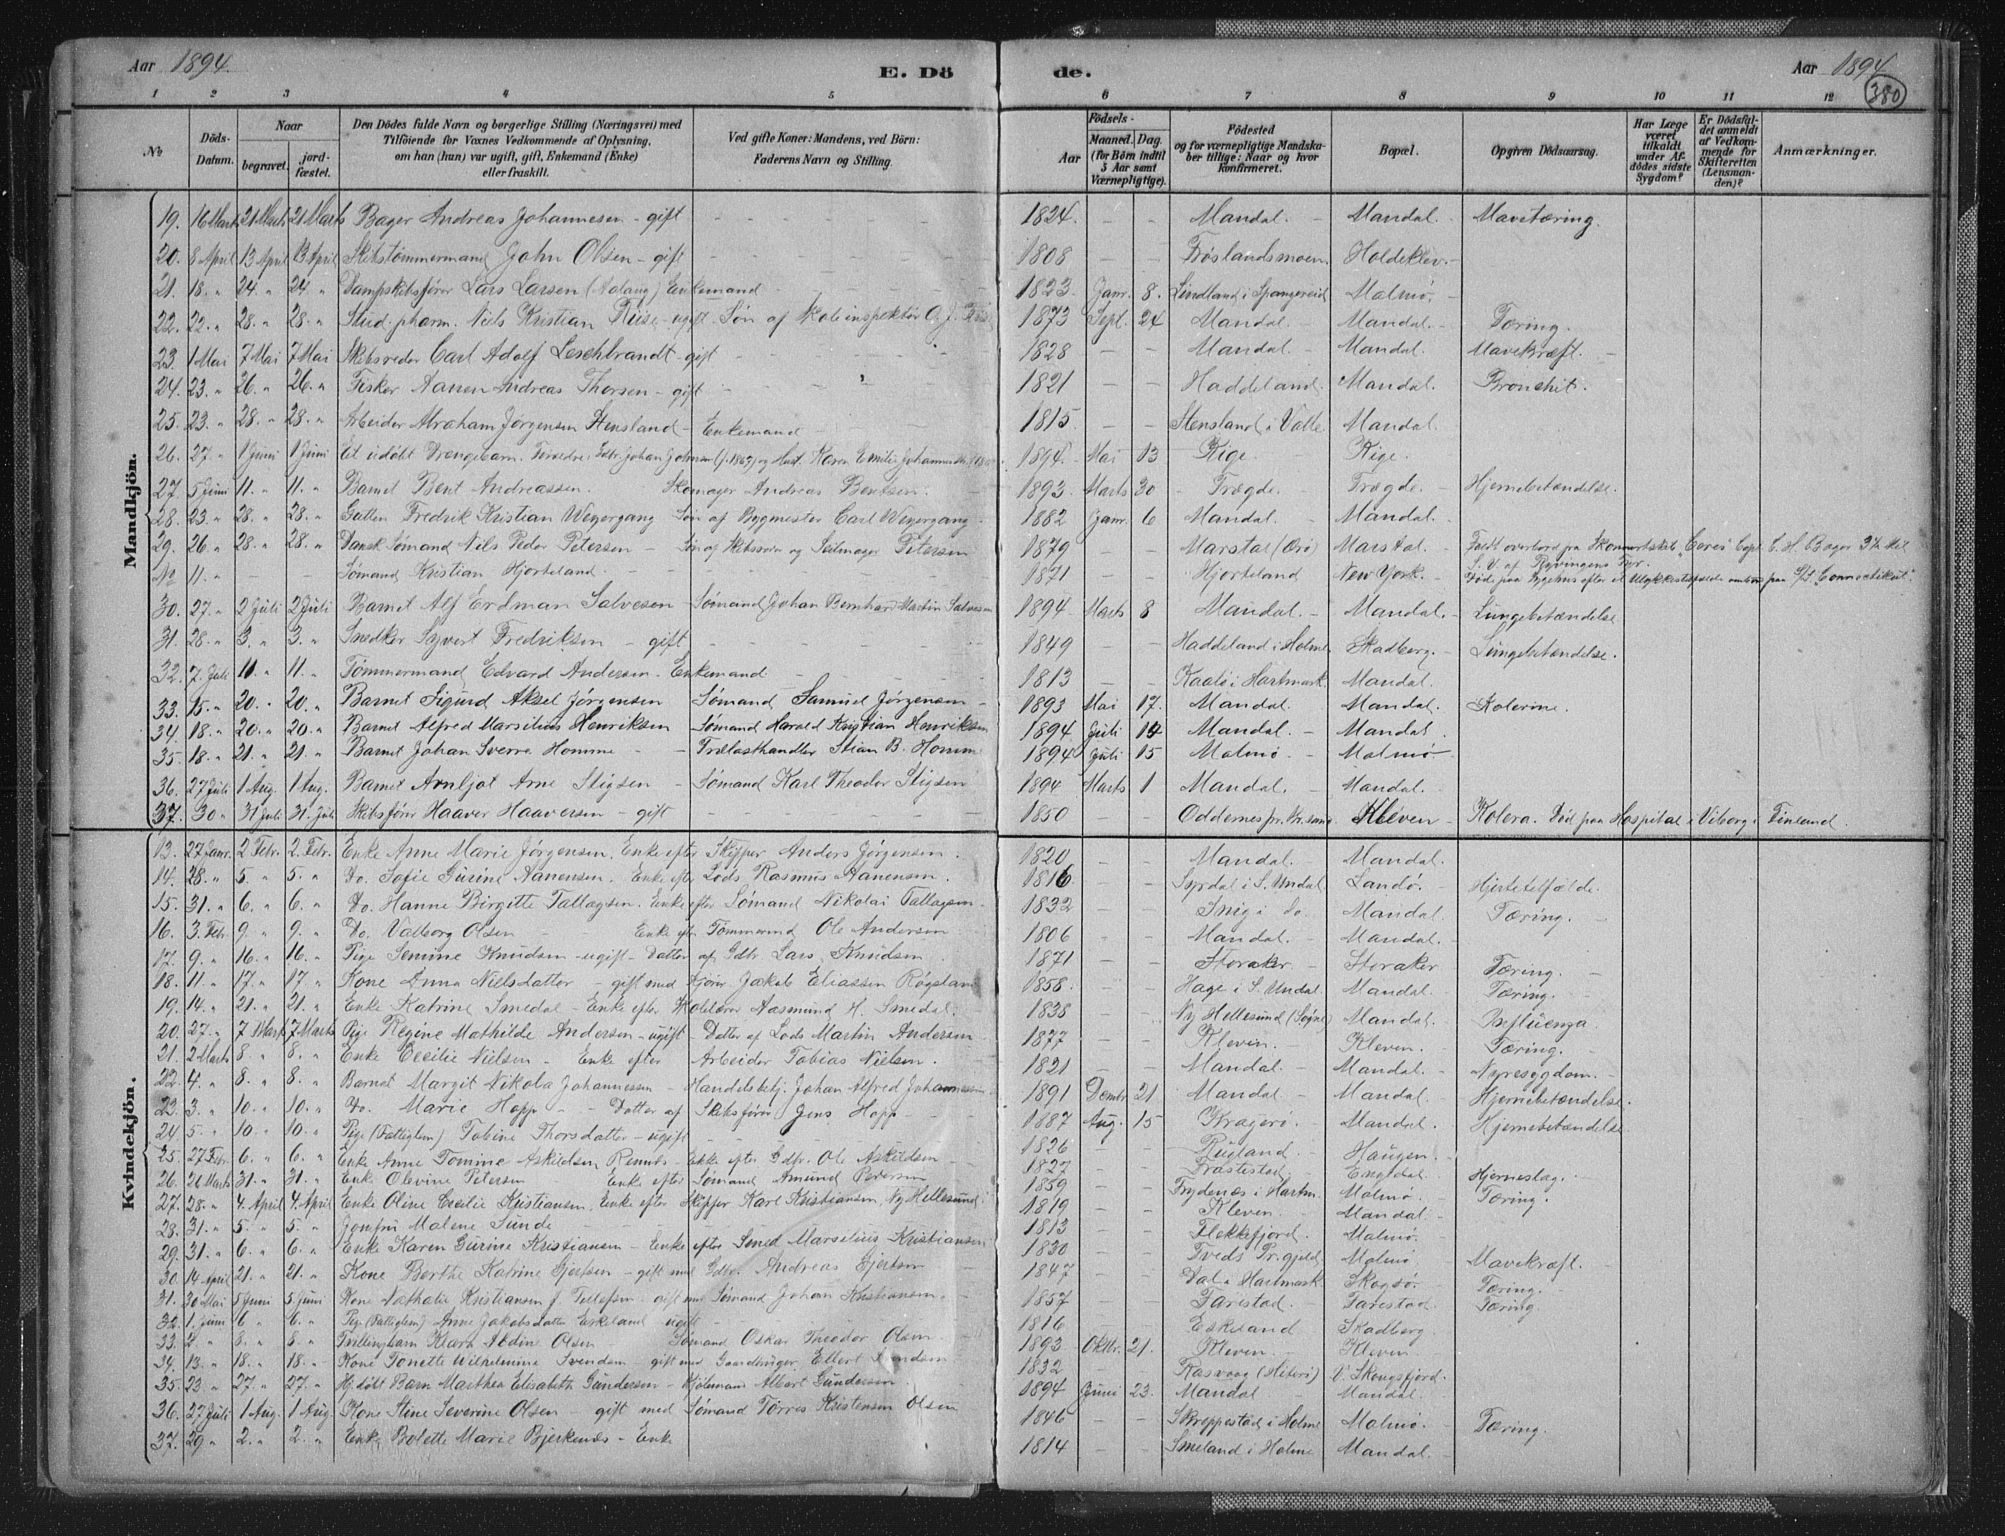 Aar 1894.
E. Dö
de.
Aar 1894
380
1 2 3 4 5 6 7 8 9 10 11 12
No
Döds-Datum.
Naar
begravet.
jord-fæstet.
Den Dödes fulde Navn og borgerlige Stilling (Næringsvei) med
Tilföiende for Voxnes Vedkommende af Oplysning,
om han (hun) var ugift, gift, Enkemand (Enke)
eller fraskilt.
Ved gifte Koner: Mandens, ved Börn:
Faderens Navn og Stilling.
Födsels-
Aar
Maaned. Dag.
(for Börn indtil
5 Aar samt
Værnepligtige).
Födested
og for værnepligtige Mandska-
ber tillige: Naar og hvor
konfirmeret.
Bopæl.
Opgiven Dödsaarsag.
Har Læge
været
tilkaldt
under Af-
dödes sidste
Sygdom?
Er Dödsfal-
det anmeldt
af Vedkom-
mende for
Skifteretten
(Lensman-
den)?
Anmærkninger.
Mandkjön.
19. 16 Marts 21 Marts 21 Marts Bager Andreas Johannesen - gift 1824. Mandal. Mandal. Mavetæring.
20. 8 April 13 April 13 April Skibstømmermand John Olsen - gift 1808 Frøslandsmoen Holdeklev.
21. 18. " 24. " 24. " Dampskibsfører Lars Larsen Enkemand 1823. Janr. 8. Lindland i Spangereid Malmø.
22. 22. " 28. " 28. " Stud. pharm. Niels Kristian Riise - ugift. Søn af Skoleinspektør O. J. 1873 Sept. 24 Mandal. Mandal. Tæring.
23. 1 Mai 7 Mai 7 Mai Skibsreder Carl Adolf Leschbrandt - gift 1828 Mandal. Mandal. Mavekræft.
24. 23. " 26. " 26. " Fisker Aanen Andreas Thorsen - gift 1821 Haddeland. Mandal. Bronchit.
25. 23. " 28. " 28. " Arbeider Abraham Jørgensen Stensland - Enkemand 1815. Stensland i Valle Mandal.
26. 27. " 1 Juni 1 Juni Et udøbt Drengebarn. Johan og Hust. Karen Emilie 1894. Mai 13 Rige. Rige.
27. 5 Juni 11. " 11. " Barnet Bent Andreassen. Skomager Andreas Bentsen. 1893. Marts 30 Trægde. Trægde. Hjernebetændelse.
28. 23. " 28. " 28. " Gutten Fredrik Kristian Wegergang Søn af Bygmester Carl Wegergang 1882 Janr. 6 Mandal. Mandal.
29. 26. " 28. " 28. " Dansk Sømand Niels Peder Petersen - Søn af og Seilmager Petersen 1879 Marstal Marstal. Faldt overbord paa "Ceres" Capt. C. H. Bager
11. " Sømand Kristian Hjorteland. 1871 Hjorteland New York. Død paa Sygehus efter et Ulykkestilfælde ombord paa S/S "Connecticut".
30. 27. " 2 Juli 2 Juli Barnet Alf Erdman Salvesen - Sømand Johan Bernhard Martin Salvesen 1894 Marts 8 Mandal. Mandal. Lungebetændelse
31. 28. " 3. " 3. " Snedker Syvert Fredriksen - gift 1849 Haddeland i Holme Skadberg. Lungebetændelse.
32. 7. Juli 11. " 11. " Tømmermand Edvard Andersen. Enkemand 1813 i Hartmark Mandal.
33. 15. " 20. " 20. " Barnet Sigurd Aksel Jørgensen Sømand Samuel Jørgensen 1893 Mai 17. Mandal. Mandal. Kolerine.
34. 18. " 20. " 20. " Barnet Alfred Marsilius Henriksen Sømand Harald Kristian Henriksen 1894. Juli 14 Mandal. Mandal.
35. 18. " 21. " 21. " Barnet Johan Sverre Homme - Trælasthandler Stian B. Homme 1894 Juli 15 Malmø Malmø
36. 27 Juli 1 Aug. 1 Aug. Barnet Arnljot Arne Stigsen - Sømand Karl Theodor Stigsen 1894 Marts 1 Mandal. Mandal.
37. 30. " 31 Juli 31. Juli Skibsfører Haaver Haaversen - gift 1850 Oddernes pr. Kr.sand Kleven Kolera. Død paa Hospital i Viborg i Finland.
Kvindekjön.
13. 27 Janr. 2 Febr. 2. Febr. Enke Anne Marie Jørgensen. Enke efter Skipper Anders Jørgensen. 1820 Mandal. Mandal.
14. 28. " 5. " 5. " Do. Sofie Gurine Aanensen. Enke efter Lods Rasmus Aanensen. 1816 Syrdal i S. Undal Landø. Hjertetilfælde.
15. 31. " 6. " 6. " Do. Hanne Birgitte Tallagsen. Enke efter Sømand Nikolai Tallagsen 1832 Snig i Do. Mandal. Tæring.
16. 3. Febr. 9. " 9. " Do. Valborg Olsen Enke efter Tømmermd Ole Andersen 1806 Mandal. Mandal.
17. 9. " 16. " 16. " Pige Semine Knudsen - ugift - Datter af Gdbr. Lars Knudsen 1871 Storaker Storaker Tæring.
18. 11. " 17. " 17. " Kone Anna Nielsdatter - gift med Jakob Eliassen Røgsland 1858. Hage i S. Undal Mandal. Tæring.
19. 14. " 21. " 21. " Enke Katrine Smedal - Enke efter Aasmund H. Smedal. 1838 Ny Hellesund (Søgne) Mandal. Influenza
20. 27. " 7 Marts 7 Marts Pige Regine Mathilde Andersen - ugift - Datter af Lods Martin Andersen 1877 Kleven. Kleven. Tæring.
21. 2 Marts 8. " 8. " Enke Cecilie Nielsen - Enke efter Arbeider Tobias Nielsen. 1821 Mandal. Mandal. Nyresygdom.
22. 4. " 8. " 8. " Barnet Margit Nikola Johannessen - Handelsbetj. Johan Alfred Johannessen 1891 Decmbr 21 Mandal Mandal. Hjernebetændelse.
23. 3. " 10. " 10. " Do. Marie Hopp - Datter af Skibsfører Jens Hopp 1887 Aug. 15 Kragerø. Mandal. Hjernebetændelse
24. 5. " 10. " 10. " Pige (Fattiglem) Tobine Thorsdatter - ugift 1826 Rugland Haugen.
25. 27 Febr. 6. " 6. " Enke Anne Tomine Askildsen - Enke efter Gdbr. Ole Askildsen 1827 Frøstestad. Engedal. Hjerneslag.
26. 26 Marts 31. " 31. " Enke Olevine Petersen Enke efter Sømand Amund Petersen 1859 Frydenæs i Hartm. Malmø. Tæring.
27. 28. " 4. April 4. April Enke Oline Cecilie Kristiansen. Enke efter Skipper Karl Kristiansen, Ny Hellesund. 1819 Kleven. Mandal.
28. 31. " 5. " 5. " Jomfru Malene Sunde 1813 Flekkefjord. Malmø.
29. 31. " 6. " 6. " Enke Karen Gurine Kristiansen - Enke efter Smed Marselius Kristiansen 1830 Tveds Prgjeld Malmø Mavekræft.
30. 14 April 21. " 21. " Kone Berthe Katrine Gjertsen - gift med Gdbr. Andreas Gjertsen 1847 Dal i Hartmark Skogsø. Tæring.
31. 30 Mai 5 Juni 5 Juni Kone Nathalie Kristiansen f. Tellefsen. gift med Sømand Johan Kristiansen. 1857 Tarestad. Tarestad. Tæring.
32. 1. Juni 6 " 6. " Pige (Fattiglem) Anne Jakobsdatter Eskeland ugift 1816 Eskeland Skadberg
33. 2. " 8. " 8. " Tvillingbarn Klara Nedine Olsen Sømand Oskar Theodor Olsen 1893 Oktbr. 21. Kleven Kleven.
34. 13. " 18. " 18. " Kone Tonette Wilhelmine Svendsen - gift med Ellert Svendsen 1832 Rasvaag (Hiterø) V. Skougsfjord.
35. 23 " 27. " 27. " Hjdøbt Barn Marthea Elisabeth Gundersen - Kjøbmand Albert Gundersen. 1894 Juni 23. Mandal Mandal.
36. 27 Juli 1 Aug. 1 Aug. Kone Stine Severine Olsen - gift med Sømand Tørres Kristensen Olsen 1846 Skreppestad i Holme Malmø. Tæring.
37. 29 " 2. " 2. " Enke Bolette Marie Bjerkenæs - Enke 1814 Smeland i Holme Mandal.